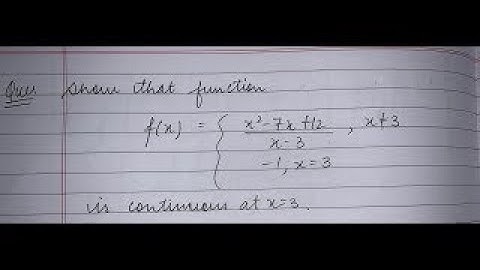 Ques Show that function
f(x) = { x²-7x+12 / x-3 , x≠3
-1, x=3
is continuous at x=3.